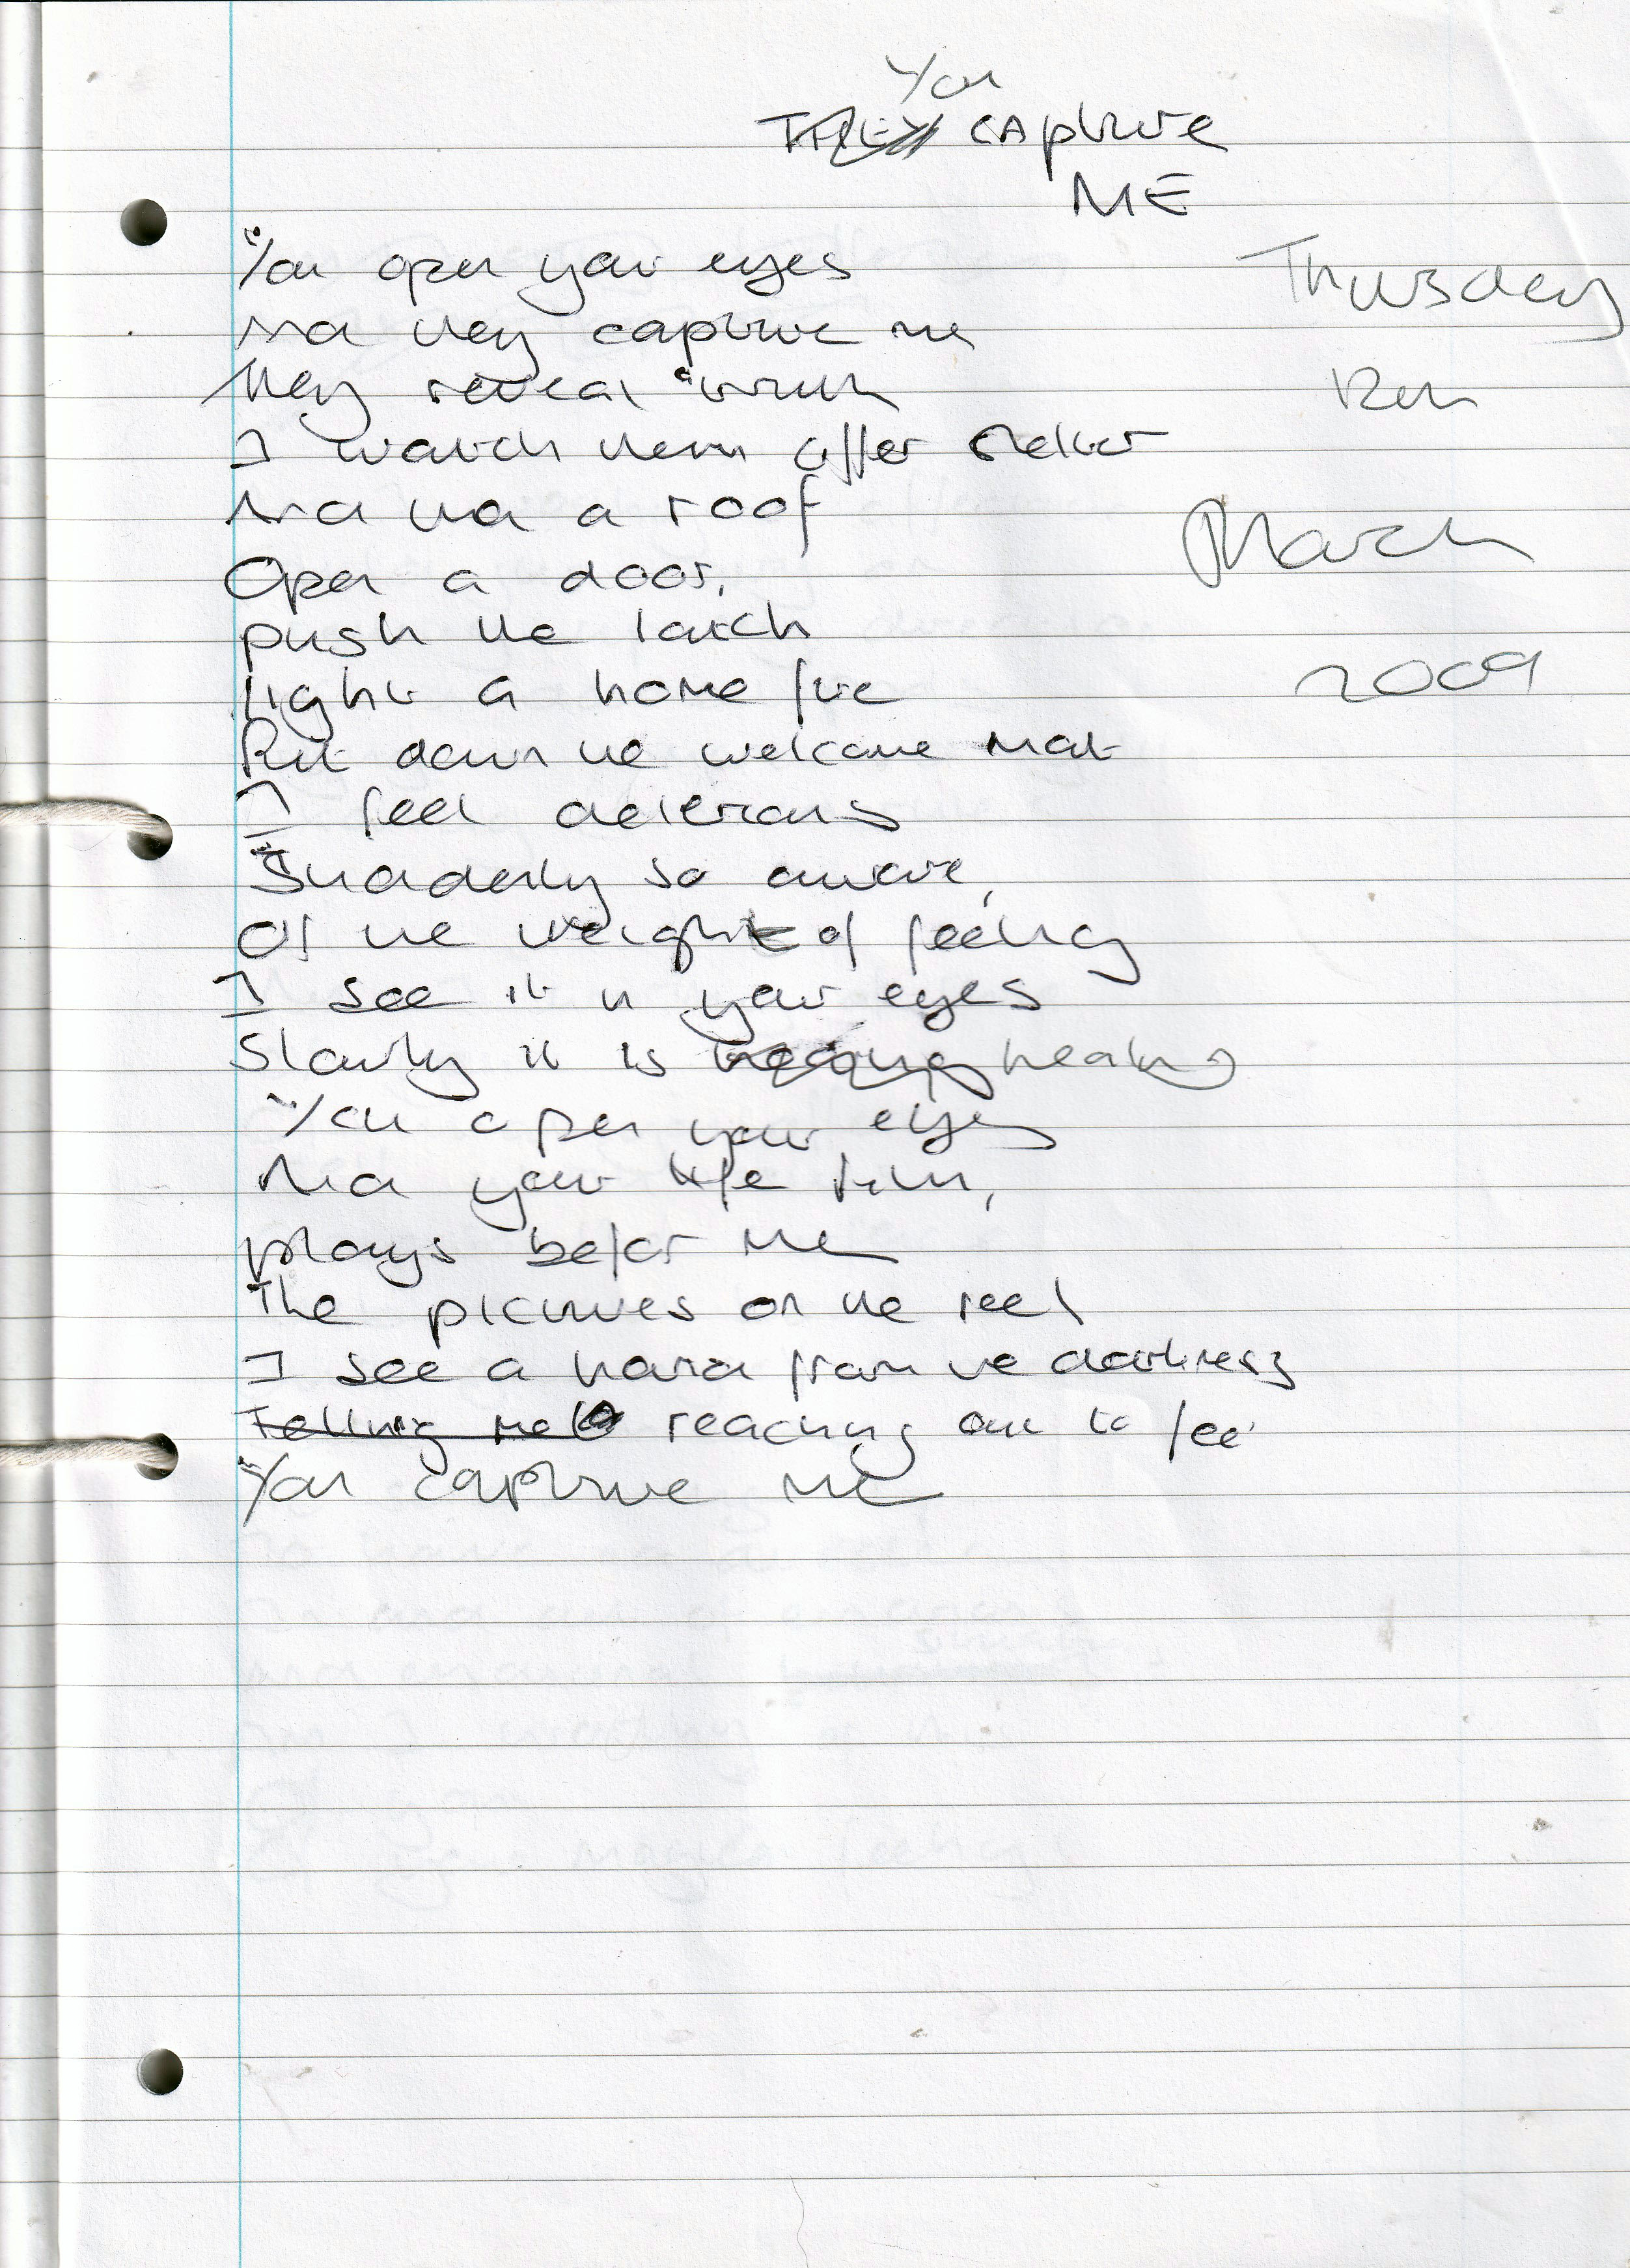 You
THEY CApture
ME
You open your eyes
And they capture me
They reveal truth
I watch them offer shelter
And then a roof
Open a door,
push the latch
light a home fire
Put down the welcome mat
I feel delerious
Suddenly so aware,
Of the weight of feeling
I see it in your eyes
Slowly it is healing
You open your eyes
And your life film,
plays befor me
The pictures on the reel
I see a hand from the darkness
Telling me to reaching out to feel
You capture me
Thursday
March
2009